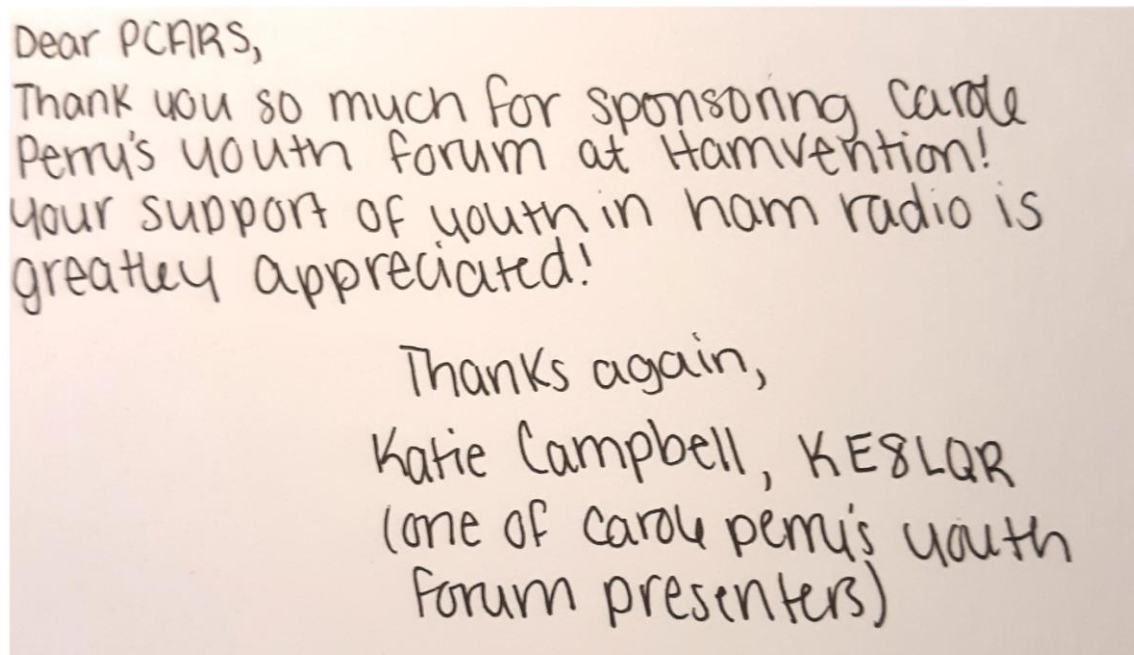 Dear PCARS,
Thank you so much for sponsoring Carole
Perry's youth forum at Hamvention!
Your support of youth in ham radio is
greatley appreciated!
Thanks again,
Katie Campbell, KE8LQR
(one of Carole Perry's youth
forum presenters)